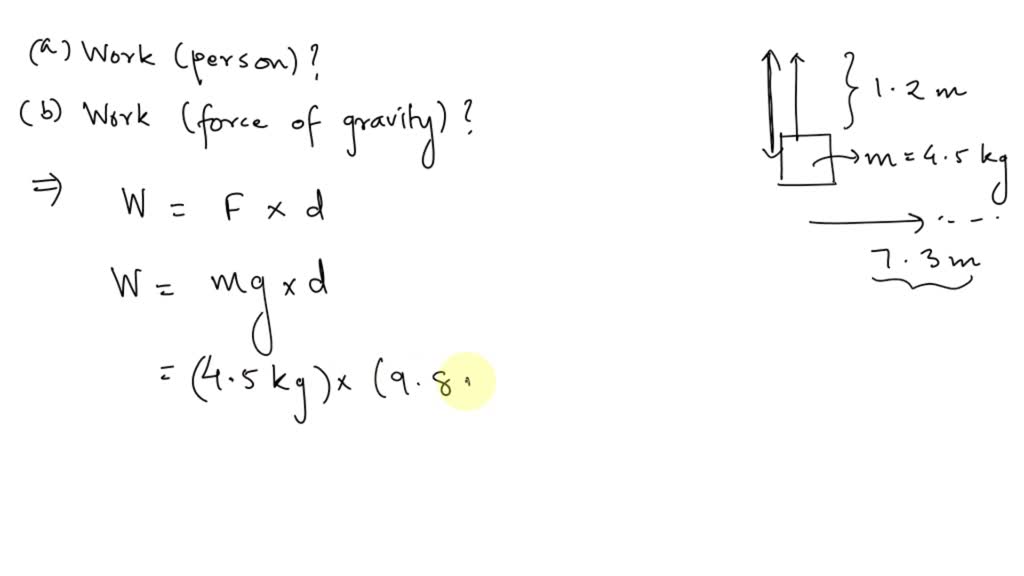 (a) Work (person)?
(b) Work (force of gravity)?
⇒ W = F × d
W = mg × d
= (4.5 kg) × (9.8
1.2 m
→ m = 4.5 kg
7.3 m